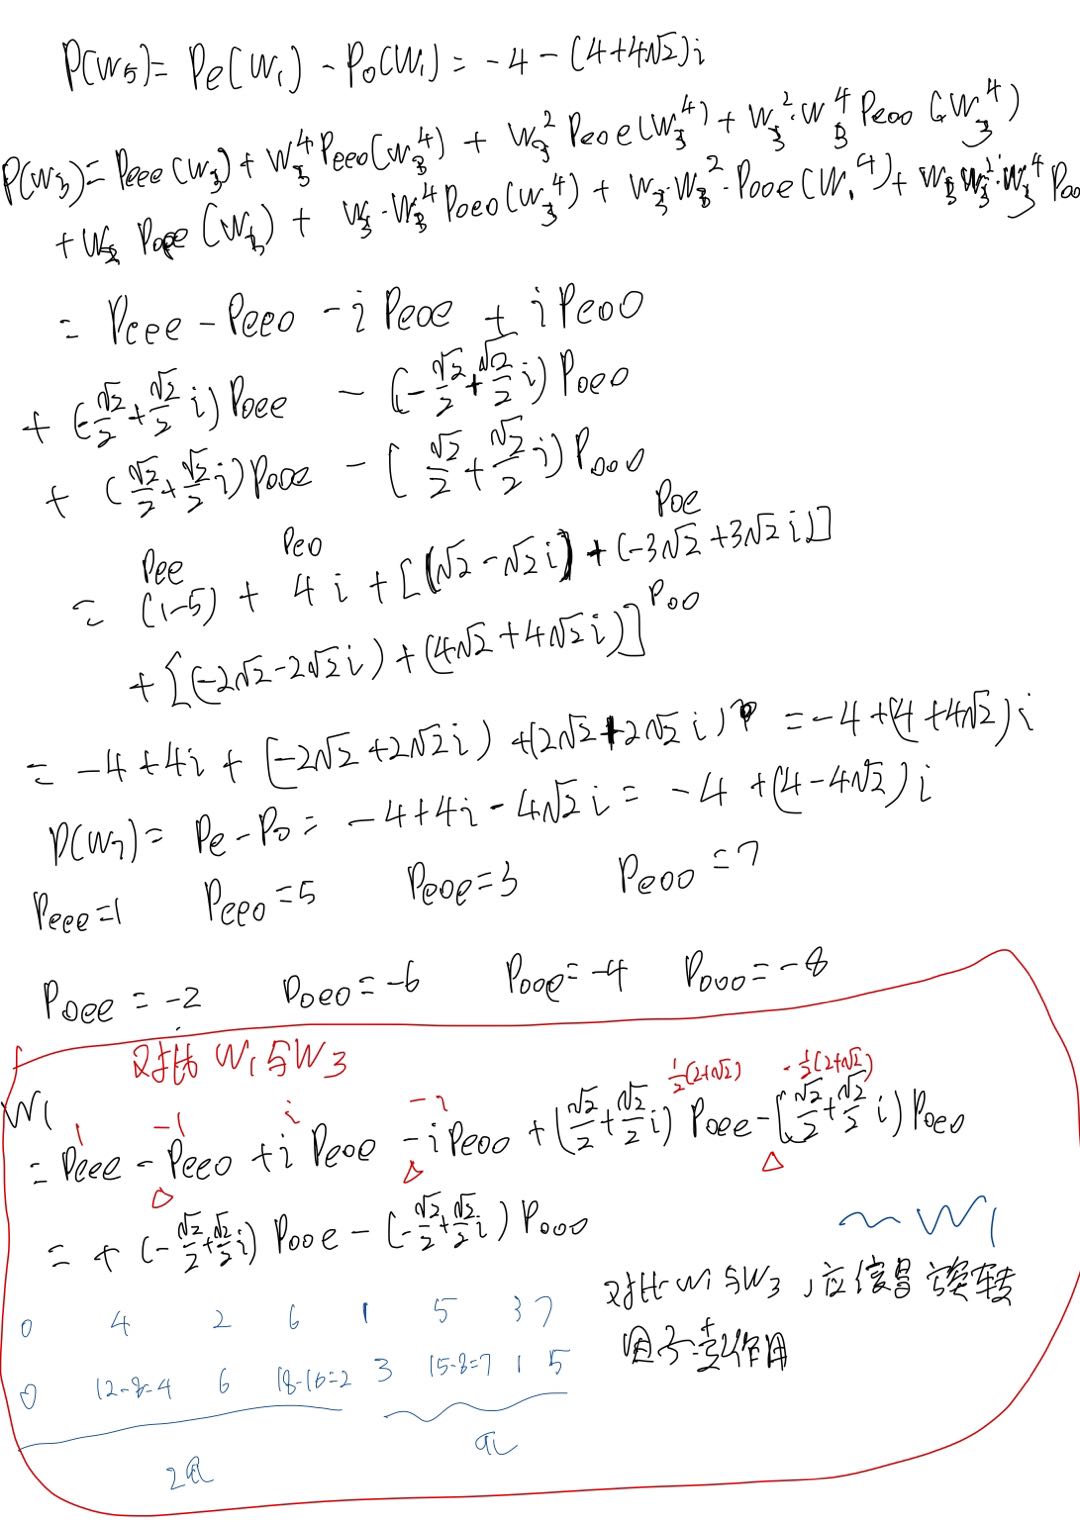 P(W5)= Pe(W1) - Po(W1) = -4 - (4+4√2)i
P(W3)= Peee(W3) + W3^4 Peeo(W3^4) + W3^2 Peoe(W3^4) + W3^2·W3^4 Peoo(W3^4)
+W3 Poee(W3) + W3·W3^4 Poeo(W3^4) + W3·W3^2·Pooe(W1^4) + W3 W3^2·W3^4 Poo
= Peee - Peeo - i Peoe + i Peoo
+ (-√2/2+√2/2 i) Poee - (-√2/2+√2/2 i) Poeo
+ (√2/2+√2/2 i) Pooe - (√2/2+√2/2 i) Pooo
Pee Peo Poe
= (1-5) + 4i + [(√2-√2i) + (-3√2+3√2i)]
+ [(-2√2-2√2i) + (4√2+4√2i)] Poo
= -4+4i + (-2√2+2√2i) + (2√2+2√2i) = -4+(4+4√2)i
P(W7)= Pe-Po = -4+4i-4√2i = -4+(4-4√2)i
Peee=1 Peeo=5 Peoe=3 Peoo=7
Poee=-2 Poeo=-6 Pooe=-4 Pooo=-8
对比 W1与W3
W1 1 -1 i -i 1/2(2+√2) -1/2(2+√2)
= Peee - Peeo + i Peoe - i Peoo + (√2/2+√2/2 i) Poee - (√2/2+√2/2 i) Poeo
= + (-√2/2+√2/2 i) Pooe - (-√2/2+√2/2 i) Pooo
~ W1
对比W1与W3,应
因子
0 4 2 6 1 5 3 7
0 12-8=4 6 18-16=2 3 15-8=7 1 5
2a a